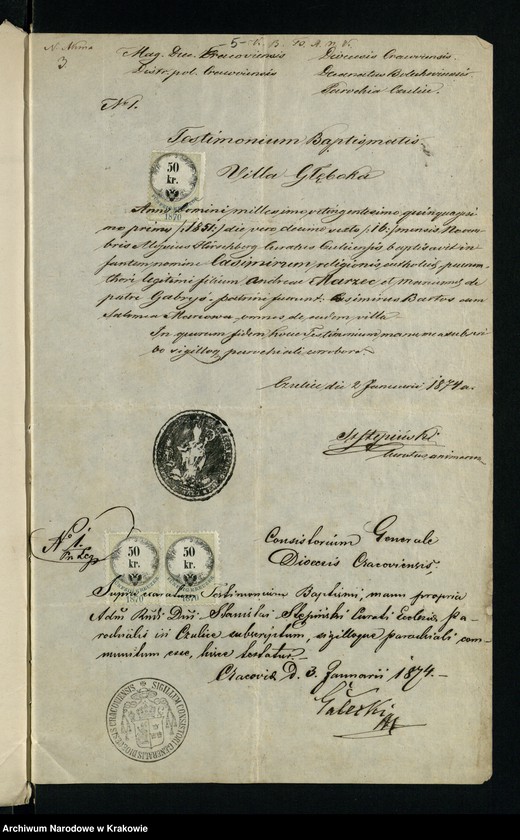 N. Alma
3
Mag. Duc. Cracoviensis
Distr. pol. Cracoviensis
Dioecesis Cracoviensis.
Decanatus Bolechoviensis
Parochia Czulice.
N° 1.
Testimonium Baptismatis
Villa Głęboka
50
kr.
1870
Anno Domini millesimo octingentesimo quinquagesi
mo primo /:1851:/ die vero decimo sexto /:16:/ mensis Novem
bris Aloysius Hirschberg Curatus Culicensis baptisavit in
fantem nomine Casimirum, religionis catholicæ, puerum
thori legitimi filium Andreæ Marzec et Mariannæ de
patre Gabryś. patrini fuerunt: Casimirus Bartos cum
Salomea omnes de eadem villa.
In quorum fidem hocce Testimonium manu mea subscri
bo sigilloq parochiali corroboro.
Czulice die 2 Januarii 1874 a.
St Stępiński
Curatus animarum
N° 1.
50
kr.
1870
50
kr.
1870
Consistorium Generale
Dioecesis Cracoviensis,
Supra exaratum Testimonium Baptismi, manu propria
Adm Rndi Dni Stanislai Stępiński Curati Ecclesiæ Pa-
rochialis in Czulice subscriptum, sigilloque parochiali com-
munitum esse, hisce testatur.-
Cracoviæ D. 3. Januarii 1874.-
Gałecki
SIGILLUM CONSISTORII GENERALIS DIOECESIS CRACOVIENSIS
Archiwum Narodowe w Krakowie